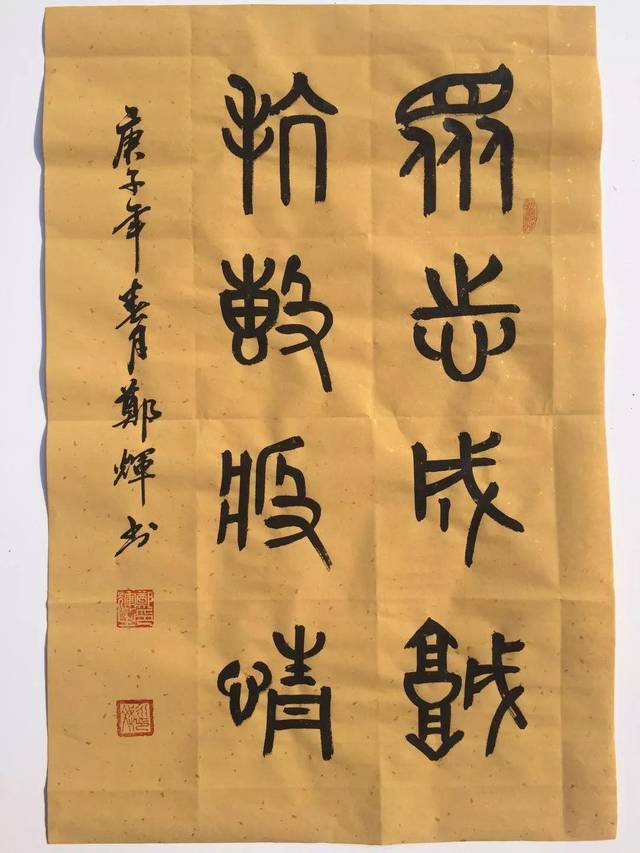 眾志成城
抗擊疫情
庚子年春月鄭輝书